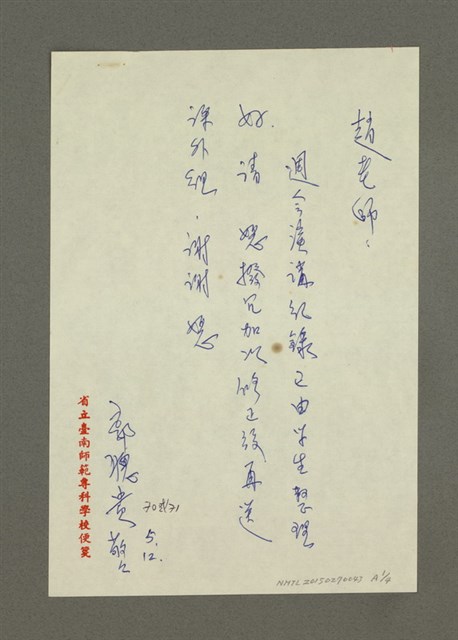 趙老師：
週會演講紀錄已由學生整理
好．請 您撥冗加以修正後再送
課外組．謝謝 您
郭聰貴 敬上
5.12.
70或71
省立臺南師範專科學校便箋
NMTL20150270043 A 1/4